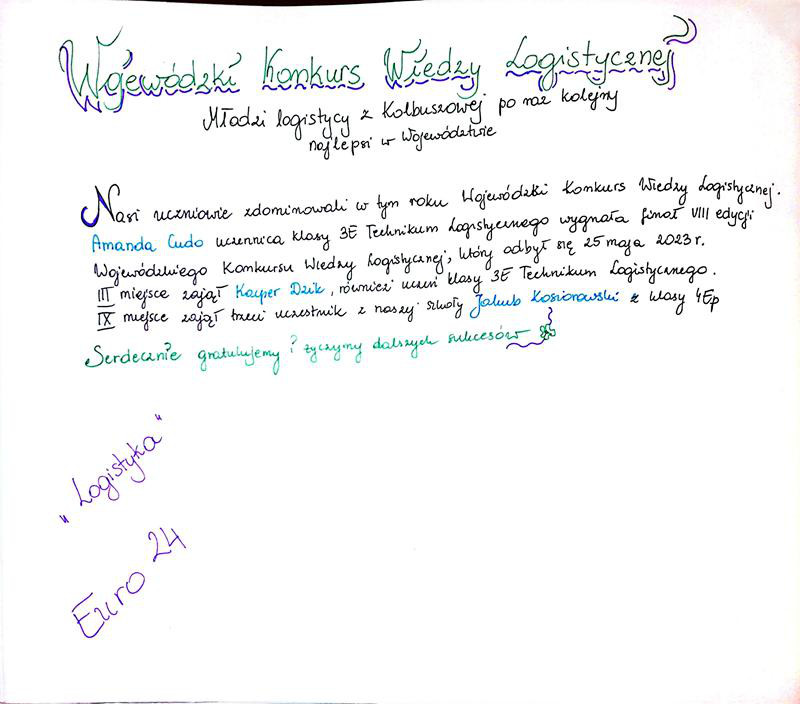 Wojewódzki Konkurs Wiedzy Logistycznej
Młodzi logistycy z Kolbuszowej po raz kolejny
najlepsi w Województwie
Nasi uczniowie zdominowali w tym roku Wojewódzki Konkurs Wiedzy Logistycznej.
Amanda Cudo uczennica klasy 3E Technikum Logistycznego wygrała finał VIII edycji
Wojewódzkiego Konkursu Wiedzy Logistycznej, który odbył się 25 maja 2023 r.
III miejsce zajął Kacper Dzik, również uczeń klasy 3E Technikum Logistycznego.
IX miejsce zajął trzeci uczestnik z naszej szkoły Jakub Kosiorowski z klasy 4Ep
Serdecznie gratulujemy i życzymy dalszych sukcesów
„Logistyka"
Euro 24